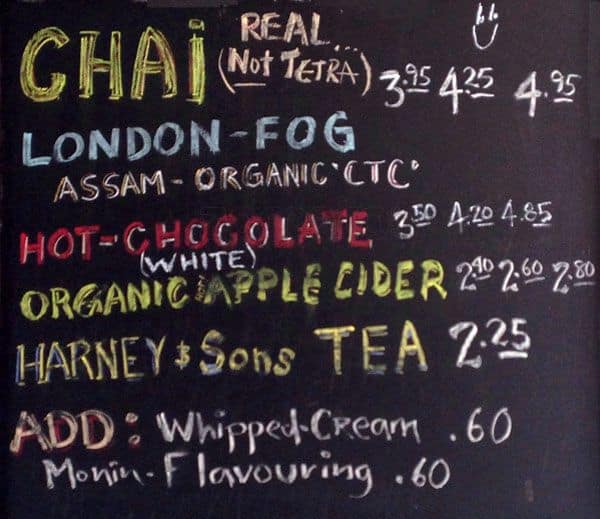 CHAI REAL... (Not TETRA) 3.95 4.25 4.95
LONDON-FOG
ASSAM - ORGANIC "CTC"
HOT-CHOCOLATE 3.50 4.20 4.85
(WHITE)
ORGANIC APPLE CIDER 2.40 2.60 2.80
HARNEY & Sons TEA 2.25
ADD: Whipped-Cream .60
Monin-Flavouring .60